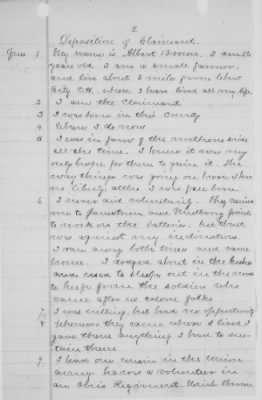 2
Deposition of Claimant.
Ques 1 My name is Albert I am
years old I am a small farmer
and live about 3 mile from
City where I have lived all my life
2 I am the Claimant
3 I was born in this County
4 Where I do now
5 I was in favor of the northern side
all the time. I knew it was my
only hope for them to gain it. The
way things was going on I had
no liberty altho I was free born.
6 I never did voluntarily. They carried
me to Jamestown and Point
to work on the batteries but that
was against my inclination.
I ran away both times and came
home. I dodged about in the
and used to sleep out in the
to keep from the soldiers who
came after us colored folks
7 I was willing but had no opportunity
8 Whenever they came where I lived I
gave them anything I had to
them
9 I had one cousin in the Union
army he was a volunteer in
an Ohio Regiment.